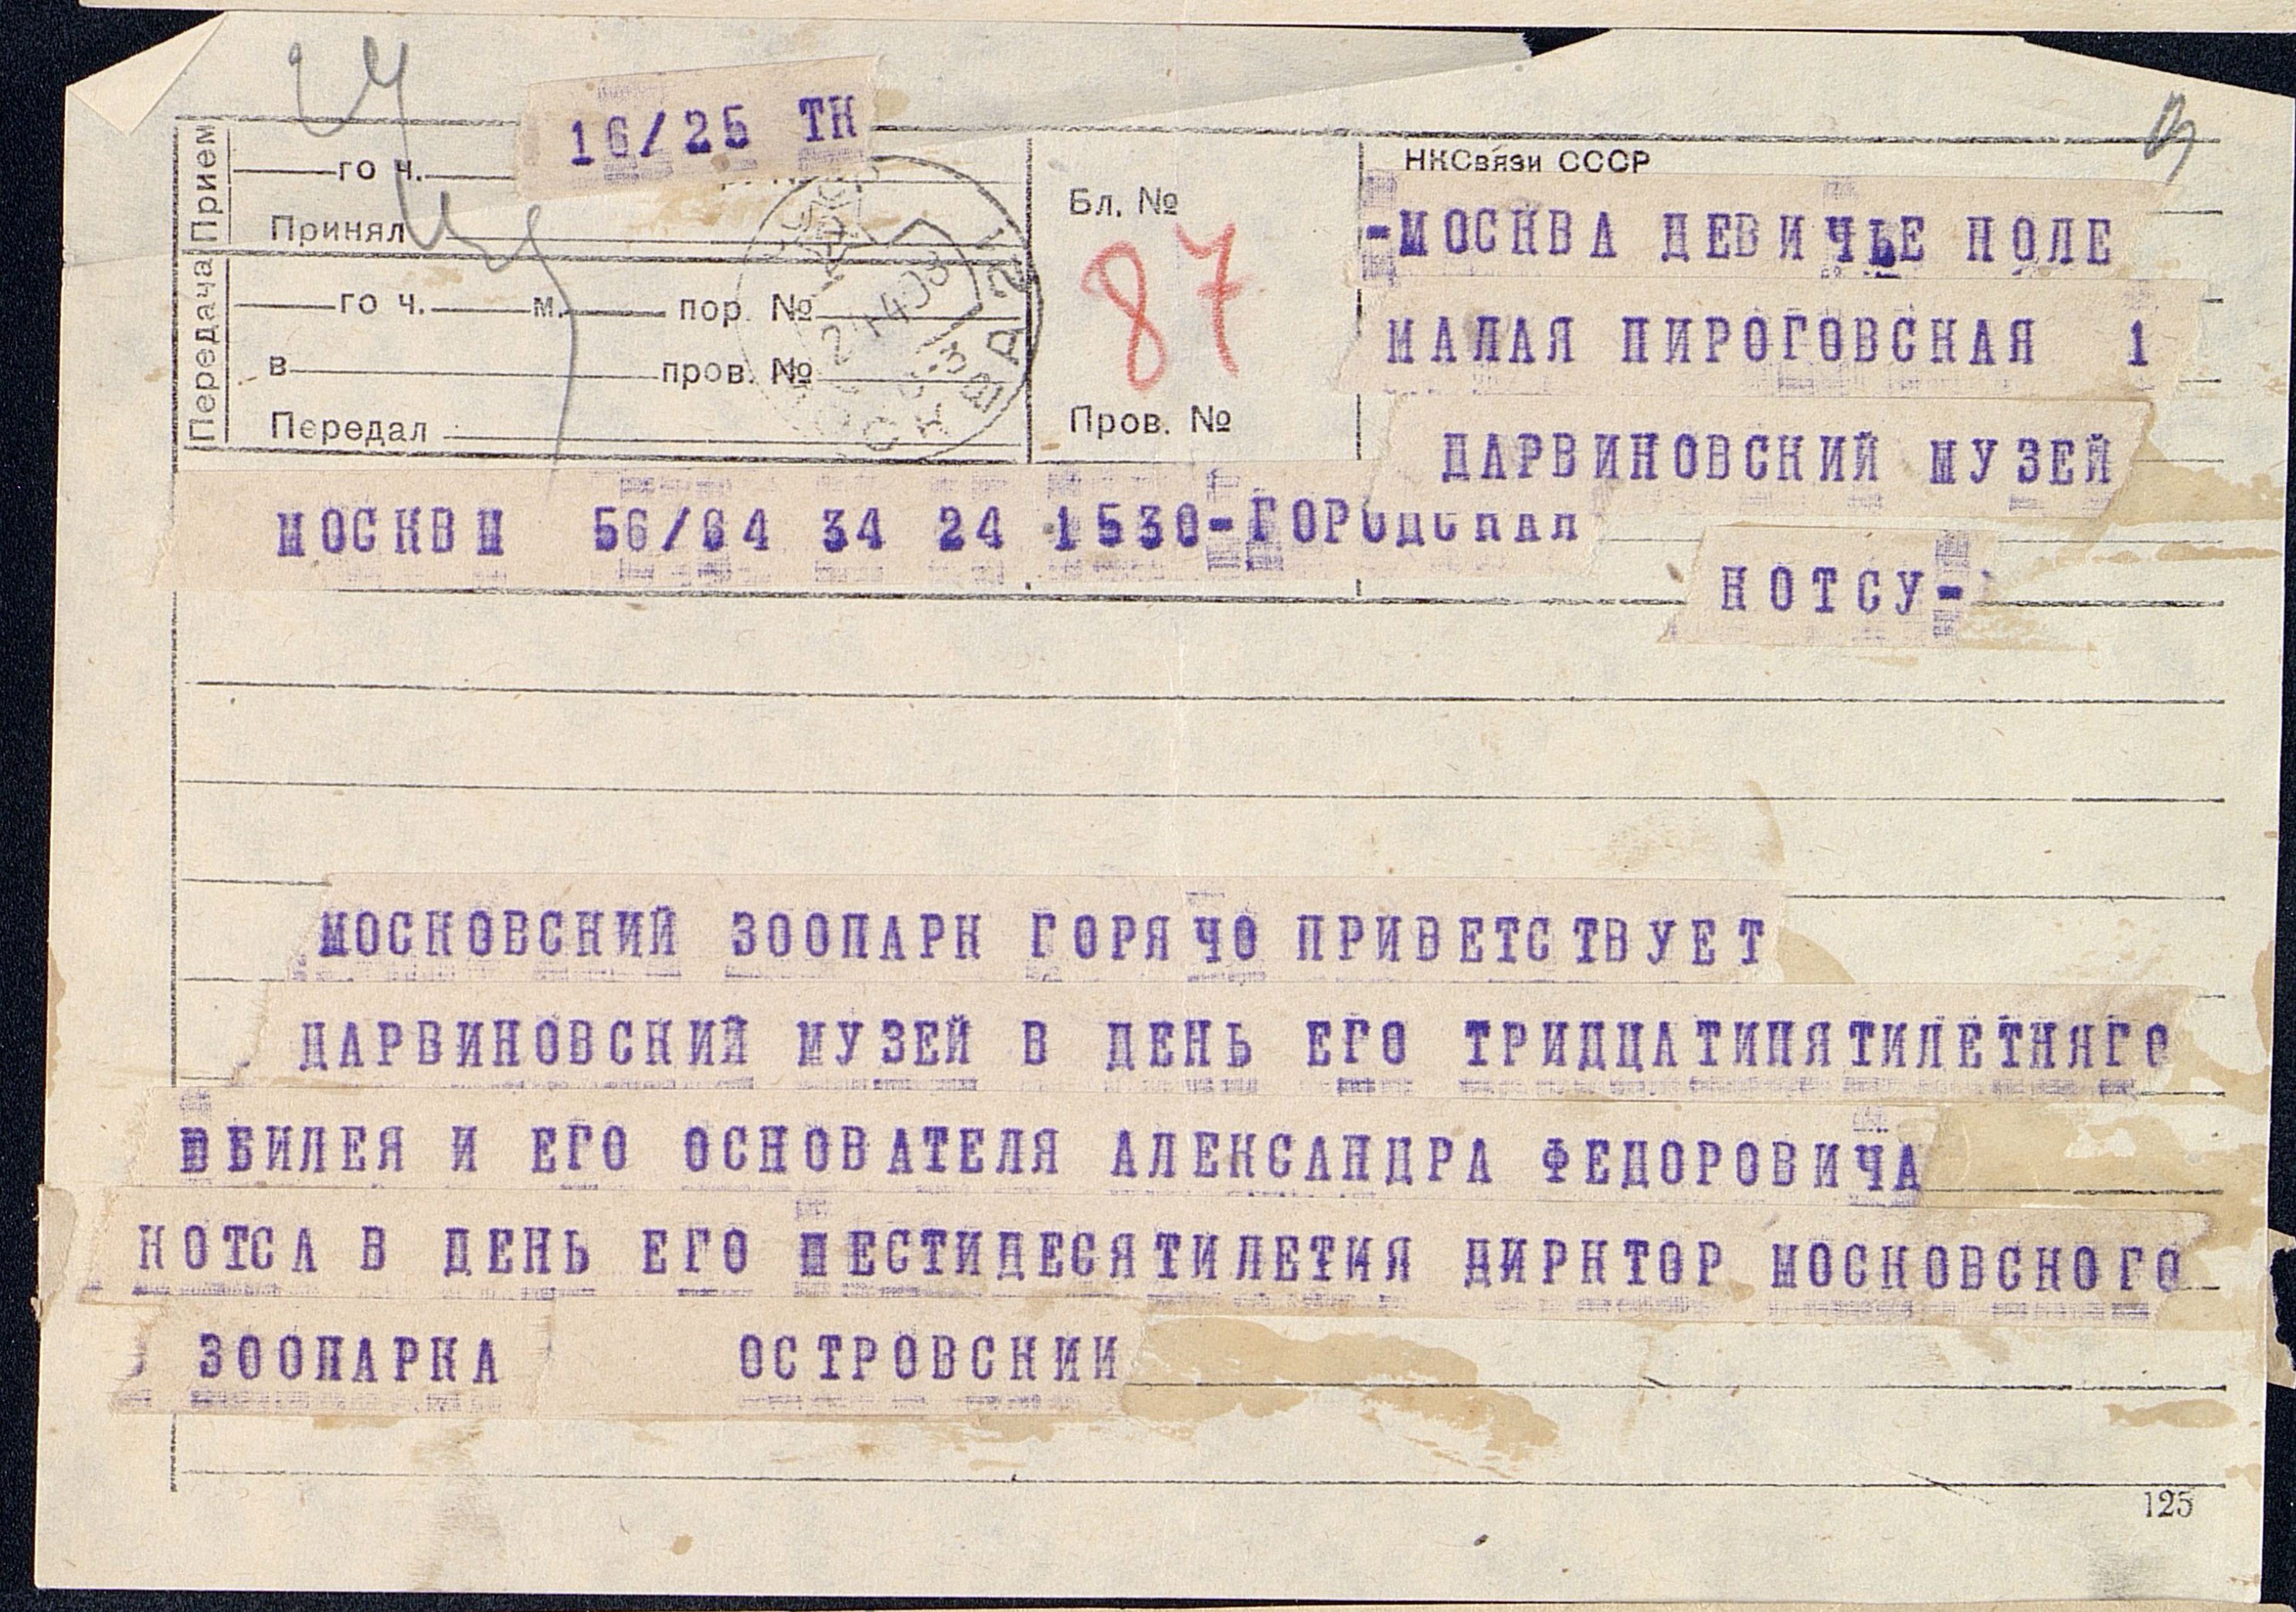 16/25 ТН
Прием
го ч.
Принял
Передача
го ч. м. пор. №
в пров. №
Передал
Бл. №
87
Пров. №
НКСвязи СССР
-МОСКВА ДЕВИЧЬЕ ПОЛЕ
МАЛАЯ ПИРОГОВСКАЯ 1
ДАРВИНОВСКИЙ МУЗЕЙ
МОСКВШ 56/64 34 24 1530-ГОРОДСКАЯ
КОТСУ-
МОСКОВСКИЙ ЗООПАРК ГОРЯЧО ПРИВЕТСТВУЕТ
ДАРВИНОВСКИЙ МУЗЕЙ В ДЕНЬ ЕГО ТРИДЦАТИПЯТИЛЕТНЯГО
ЮБИЛЕЯ И ЕГО ОСНОВАТЕЛЯ АЛЕКСАНДРА ФЕДОРОВИЧА
КОТСА В ДЕНЬ ЕГО ШЕСТИДЕСЯТИЛЕТИЯ ДИРКТОР МОСКОВСКОГО
ЗООПАРКА ОСТРОВСКИИ
125